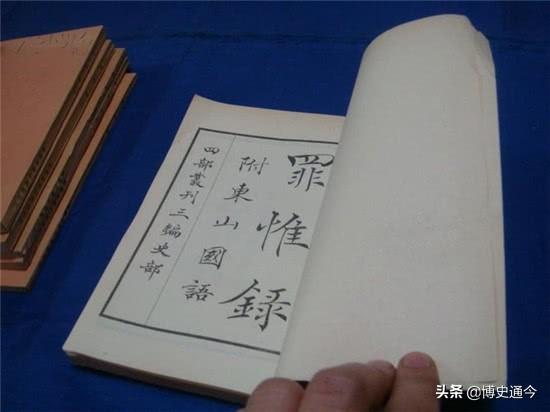 罪惟錄
附東山國語
四部叢刊三編史部
头条 @博史通今